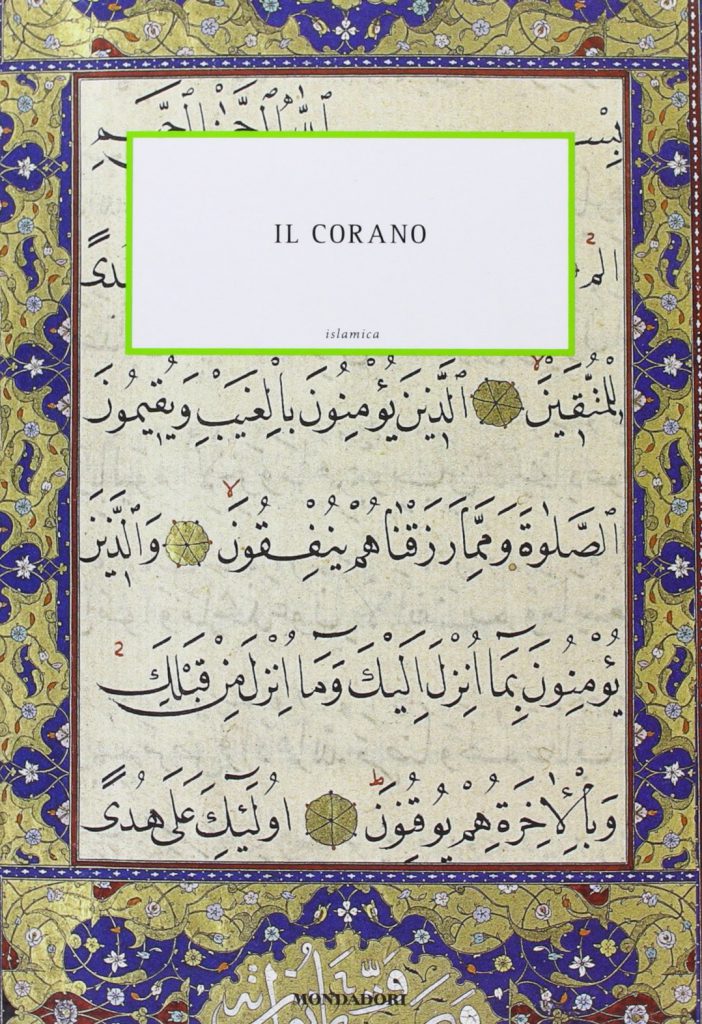 اللّٰهِ الرَّحْمٰنِ الرَّحِيمِ
IL CORANO
الم
islamica
لِلْمُتَّقِينَ الَّذِينَ يُؤْمِنُونَ بِالْغَيْبِ وَيُقِيمُونَ
الصَّلٰوةَ وَمِمَّا رَزَقْنَاهُمْ يُنْفِقُونَ وَالَّذِينَ
يُؤْمِنُونَ بِمَٓا اُنْزِلَ اِلَيْكَ وَمَٓا اُنْزِلَ مِنْ قَبْلِكَ
وَبِالْاٰخِرَةِ هُمْ يُوقِنُونَ اُولٰٓئِكَ عَلٰى هُدًى
MONDADORI